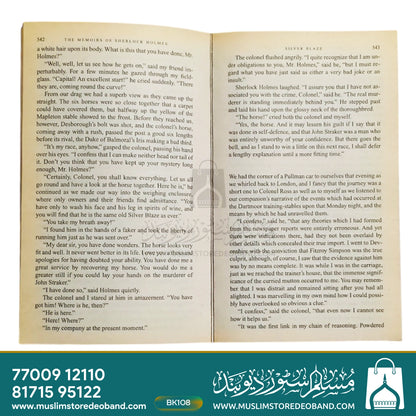 342
THE MEMOIRS OF SHERLOCK HOLMES
a white hair upon its body. What is this that you have done, Mr.
Holmes?"
"Well, well, let us see how he gets on," said my friend im-
perturbably. For a few minutes he gazed through my field-
glass. "Capital! An excellent start!" he cried suddenly. "There
they are, coming round the curve!"
From our drag we had a superb view as they came up the
straight. The six horses were so close together that a carpet
could have covered them, but halfway up the yellow of the
Mapleton stable showed to the front. Before they reached us,
however, Desborough's bolt was shot, and the colonel's horse,
coming away with a rush, passed the post a good six lengths
before its rival, the Duke of Balmoral's Iris making a bad third.
"It's my race, anyhow," gasped the colonel, passing his hand
over his eyes. "I confess that I can make neither head nor tail of
it. Don't you think that you have kept up your mystery long
enough, Mr. Holmes?"
"Certainly, Colonel, you shall know everything. Let us all
go round and have a look at the horse together. Here he is," he
continued as we made our way into the weighing enclosure
where only owners and their friends find admittance. "You
have only to wash his face and his leg in spirits of wine, and
you will find that he is the same old Silver Blaze as ever."
"You take my breath away!"
"I found him in the hands of a faker and took the liberty of
running him just as he was sent over."
"My dear sir, you have done wonders. The horse looks very
fit and well. It never went better in its life. I owe you a thousand
apologies for having doubted your ability. You have done me a
great service by recovering my horse. You would do me a
greater still if you could lay your hands on the murderer of
John Straker."
"I have done so," said Holmes quietly.
The colonel and I stared at him in amazement. "You have
got him! Where is he, then?"
"He is here."
"Here! Where?"
"In my company at the present moment."
SILVER BLAZE
343
The colonel flushed angrily. "I quite recognize that I am un-
der obligations to you, Mr. Holmes," said he, "but I must re-
gard what you have just said as either a very bad joke or an
insult."
Sherlock Holmes laughed. "I assure you that I have not as-
sociated you with the crime, Colonel," said he. "The real mur-
derer is standing immediately behind you." He stepped past
and laid his hand upon the glossy neck of the thoroughbred.
"The horse!" cried both the colonel and myself.
"Yes, the horse. And it may lessen his guilt if I say that it
was done in self-defence, and that John Straker was a man who
was entirely unworthy of your confidence. But there goes the
bell, and as I stand to win a little on this next race, I shall defer
a lengthy explanation until a more fitting time."
We had the corner of a Pullman car to ourselves that evening as
we whirled back to London, and I fancy that the journey was a
short one to Colonel Ross as well as to myself as we listened to
our companion's narrative of the events which had occurred at
the Dartmoor training-stables upon that Monday night, and the
means by which he had unravelled them.
"I confess," said he, "that any theories which I had formed
from the newspaper reports were entirely erroneous. And yet
there were indications there, had they not been overlaid by
other details which concealed their true import. I went to Dev-
onshire with the conviction that Fitzroy Simpson was the true
culprit, although, of course, I saw that the evidence against him
was by no means complete. It was while I was in the carriage,
just as we reached the trainer's house, that the immense signif-
icance of the curried mutton occurred to me. You may remem-
ber that I was distrait and remained sitting after you had all
alighted. I was marvelling in my own mind how I could possi-
bly have overlooked so obvious a clue."
"I confess," said the colonel, "that even now I cannot see
how it helps us."
"It was the first link in my chain of reasoning. Powdered
77009 12110
81715 95122
BK108
مسلم سٹور دیوبند
www.muslimstoredeoband.com
www.muslimstoredeoband.com